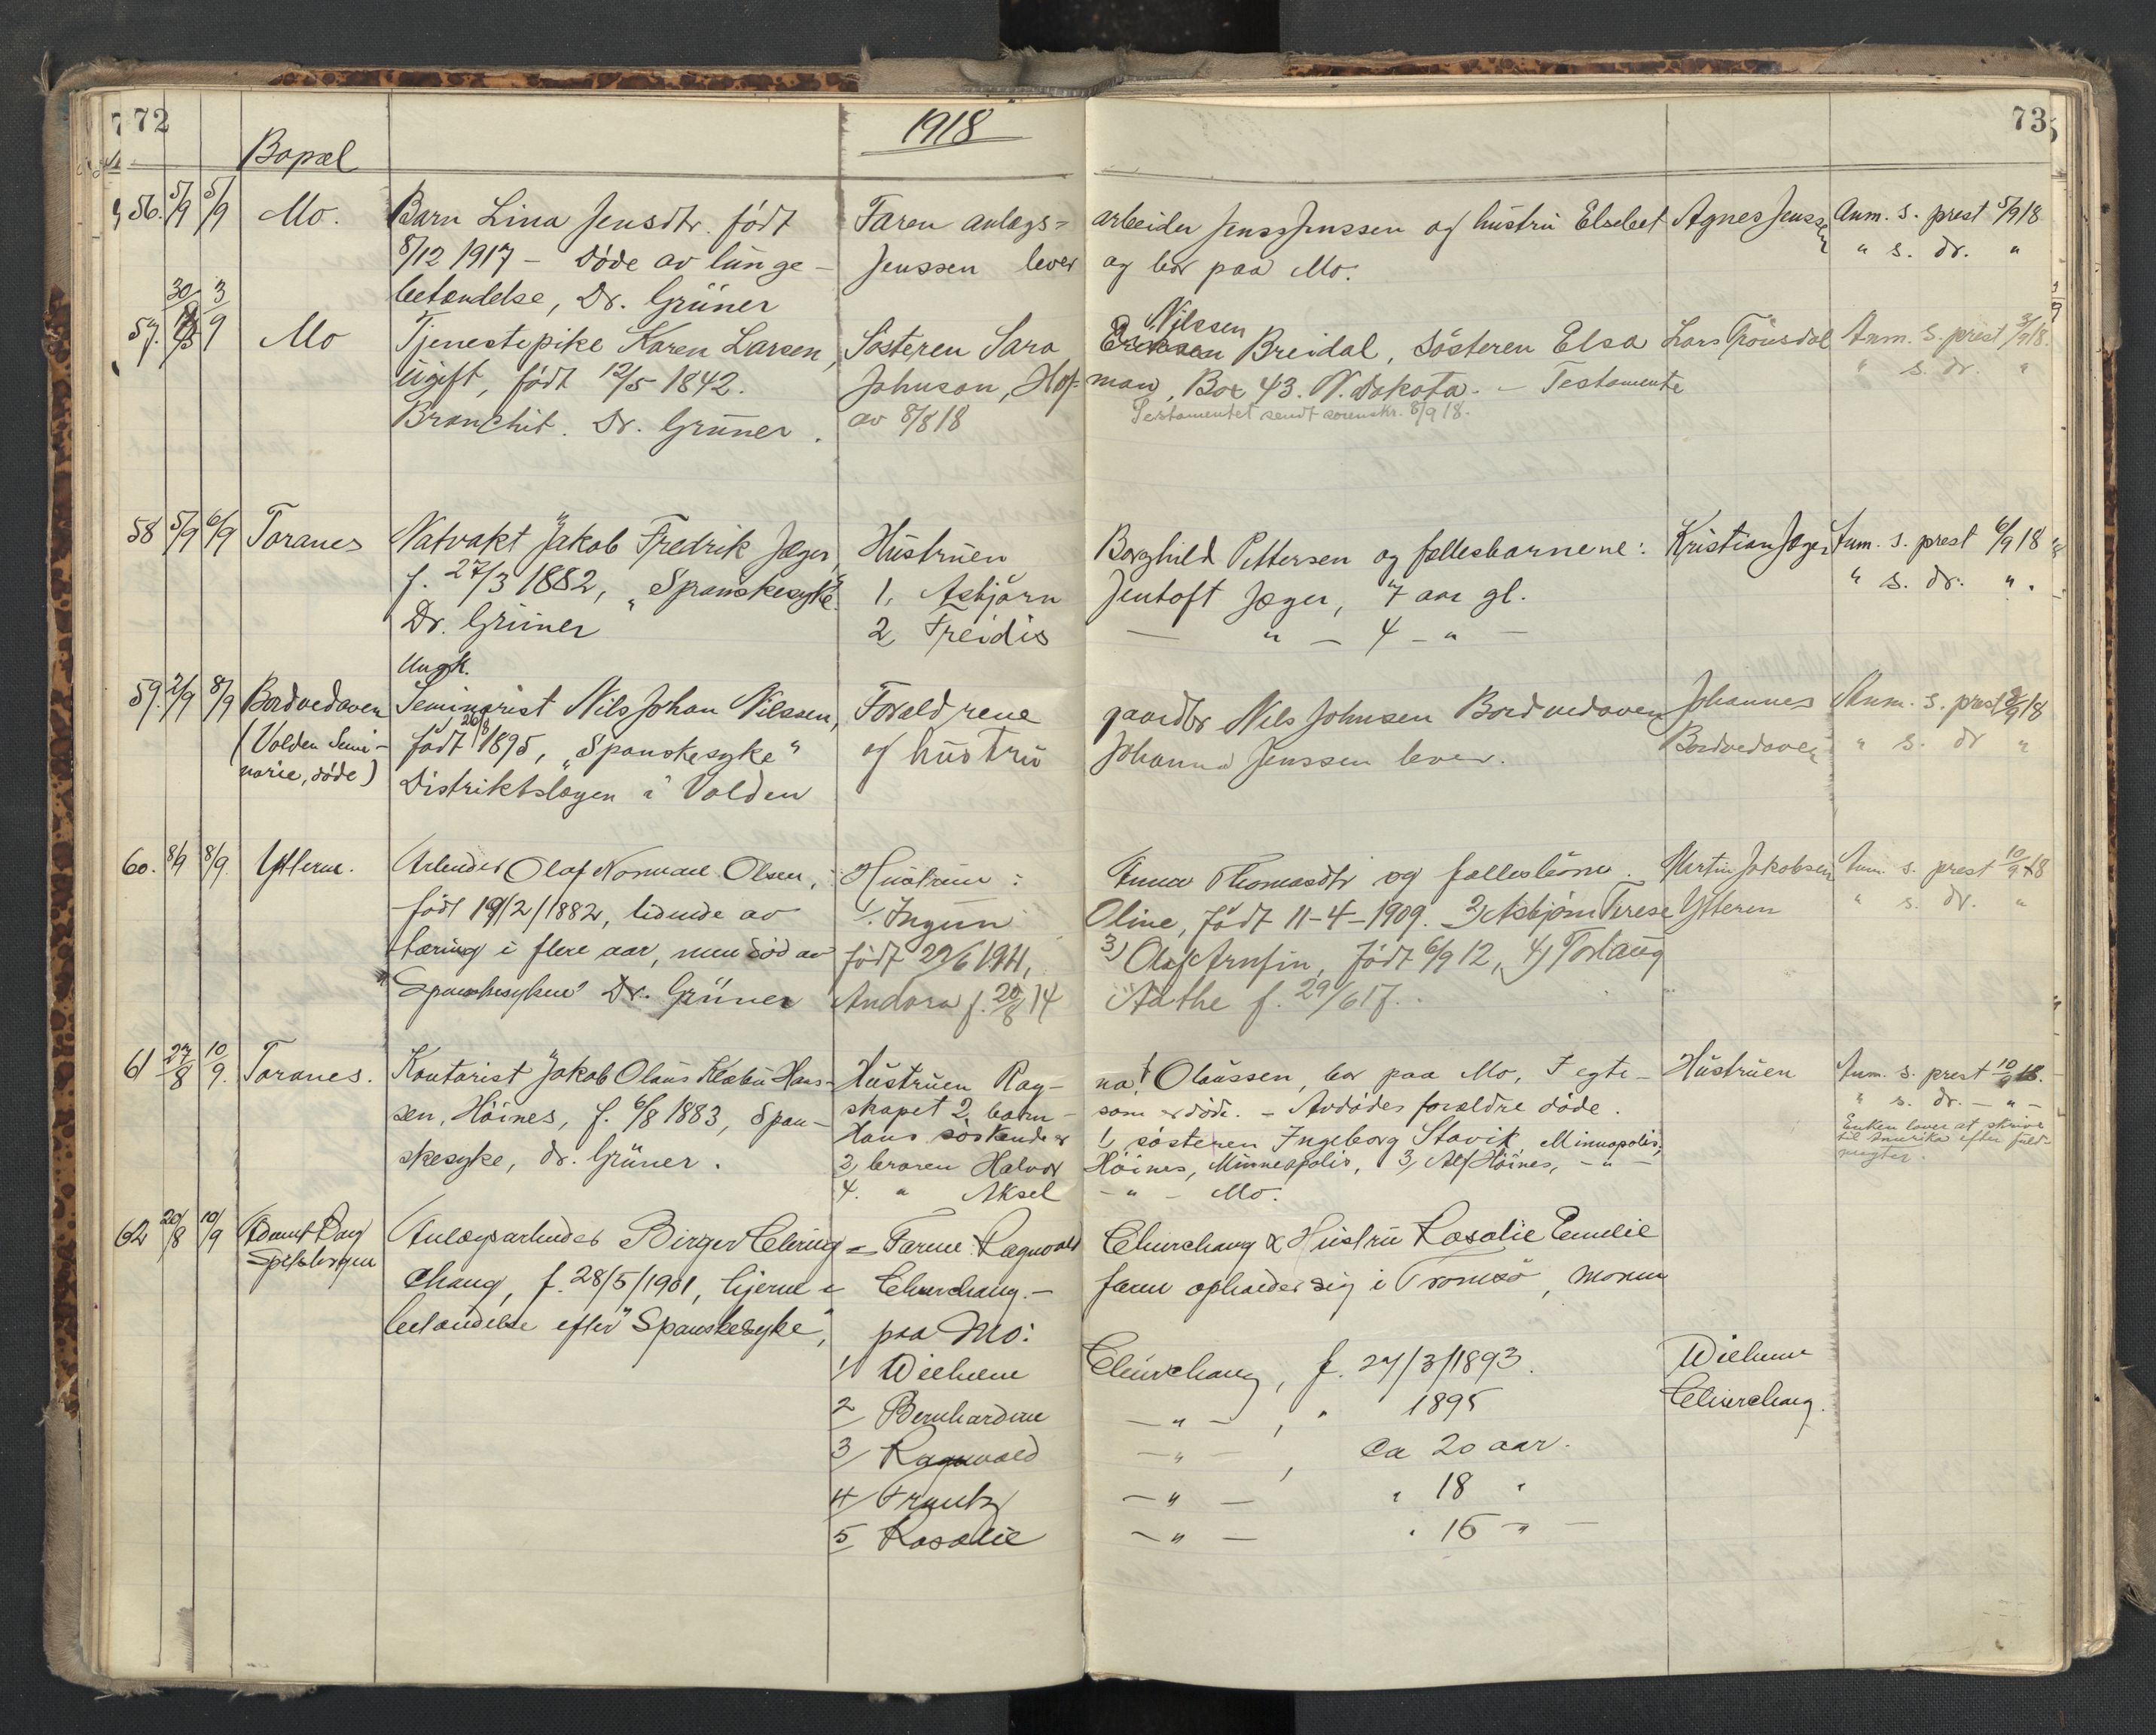 72
1918
73
Bopæl
56. 5/9 5/9 Mo. Barn Lina Jensdtr. født Faren anlægs= arbeider Jens Jenssen og hustru Elsebet Agnes Jenssen Anm. s. prest 5/9 18
8/12 1917 – Døde av lunge- Jenssen lever og bor paa Mo. " s. dr. "
betændelse, Dr. Grüner
57. 30/8 3/9 Mo Tjenestepike Karen Larsen, Søsteren Sara Nilssen Breidal, søsteren Elsa Lars Anm. s. prest 3/9 18.
ugift, født 12/5 1842. Johnson, Hof= man, Box 43. N. Dakota. – Testamente " s. dr. "
Bronchit. Dr. Grüner. av 8/8 18 Testamentet sendt sorenskr. 8/9 18.
58 5/9 6/9 Toranes Natvakt Jakob Fredrik Jæger, Hustruen Borghild Pettersen og fællesbarnene: Kristian Jæger Anm. s. prest 6/9 18
f. 27/3 1882, "Spanskesyke" 1, Asbjørn Jentoft Jæger, 7 aar gl. " s. dr. ".
Dr. Grüner 2, Freidis — " — 4 – " –
Ungk.
59. 2/9 8/9 Bordvedaven Seminarist Nils Johan Nilssen, Forældrene gaardbr Nils Johnsen Bordvedaven Johannes Anm. s. prest 9/9 18
(Volden Semi- født 26/8 1895, "Spanskesyke" og hustru Johanna Jenssen lever. Bordvedaven " s. dr "
narie, døde) Distriktslægen i Volden
60. 8/9 8/9. Ytteren. Arbeider Olaf Normann Olsen, Hustruen: Anna Thomasdtr og fællesbørn. Martin Jakobsen Anm. s. prest 10/9 18
født 19/2/1882, lidende av 1. Ingun Oline, født 11-4-1909. 2) Asbjørn Terese Ytteren " s. dr. "
tæring i flere aar, men død av født 22/6 1911, 3) Olaf Arnfin, født 6/9 12, 4) Torlaug
"Spanskesyken" Dr. Grüner Andora f. 20/8 14 Aathe f. 29/6 17.
61 27/8 10/9. Toranes. Kontorist Jakob Olaus Klæbu Hans- Hustruen Rag- na Olaussen, bor paa Mo, I egte- Hustruen Anm. s. prest 10/9 18.
sen, Høines, f. 6/8 1883, Span- skapet 2 barn – som er døde. – Avdødes forældre døde. " s. dr. – " –
skesyke, dr. Grüner. Hans søskende er 1, søsteren Ingeborg Stavik, Minneapolis, Enken lover at skrive
2, broren Halvor Høines, Minneapolis, 3, Alf Høines, – " – til Amerika efter fuld-
4. " Aksel – " – Mo. magter.
62 20/8 10/9 Advent Bay Anlægsarbeider Birger Elving= Faren: Ragnvald Elvirchaug & Hustru Rosalie Emelie
Spitsbergen chaug, f. 28/5/1901, hjerne= Elvirchaug.– faren opholder sig i Tromsø, moren
betændelse efter "Spanskesyke", paa Mo:
1/ Wilhelm Elvirchaug, f. 27/3/1893. Wilhelm
2/ Bernhardine – " –, " 1895 Elvirchaug.
3/ Ragnvald – " –, Ca 20 aar.
4/ Frantz – " – " 18 "
5/ Rosalie – " – " 16 – " –